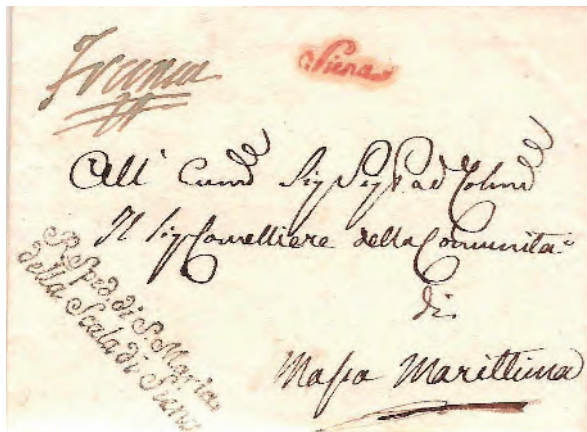 Franca
Siena
All'
Sig Sig
Il Sig Cancelliere della Comunita
di
Massa Marittima
R. Sped. di S. Maria
della Scala di Siena